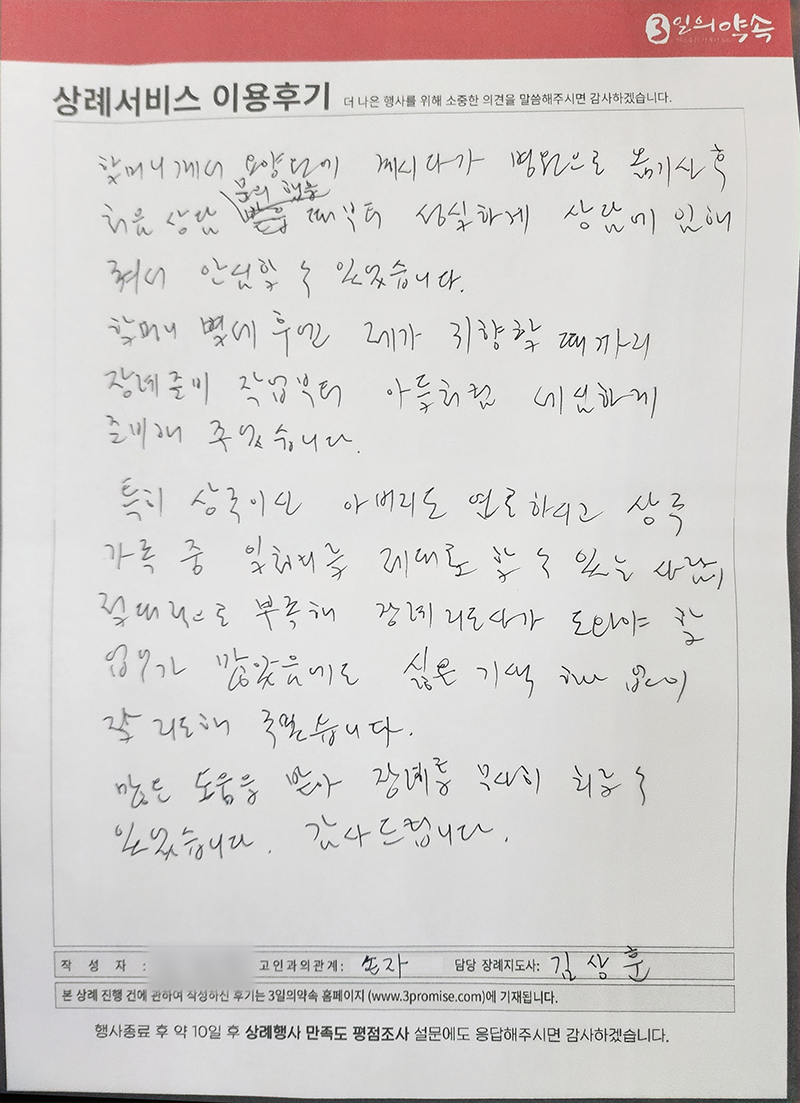 3일의약속
상례서비스 이용후기 더 나은 행사를 위해 소중한 의견을 말씀해주시면 감사하겠습니다.
할머니께서 요양원에 계시다가 병원으로 옮기신 후
문의 했을
처음 상담 받을 때부터 성실하게 상담에 임해
줘서 안심할 수 있었습니다.
할머니 별세 후엔 제가 귀향할 때까지
장례준비 작업부터 아들처럼 세심하게
준비해 주었습니다.
특히 상주이신 아버지도 연로하시고 상주
가족 중 일처리를 제대로 할 수 있는 사람이
절대적으로 부족해 장례지도사가 도와야 할
업무가 많았음에도 싫은 기색 하나 없이
잘 지도해 주셨습니다.
많은 도움을 받아 장례를 무사히 치를 수
있었습니다. 감사드립니다.
작 성 자 : 고인과의관계: 손자 담당 장례지도사: 김상훈
본 상례 진행 건에 관하여 작성하신 후기는 3일의약속 홈페이지 (www.3promise.com)에 기재됩니다.
행사종료 후 약 10일 후 상례행사 만족도 평점조사 설문에도 응답해주시면 감사하겠습니다.